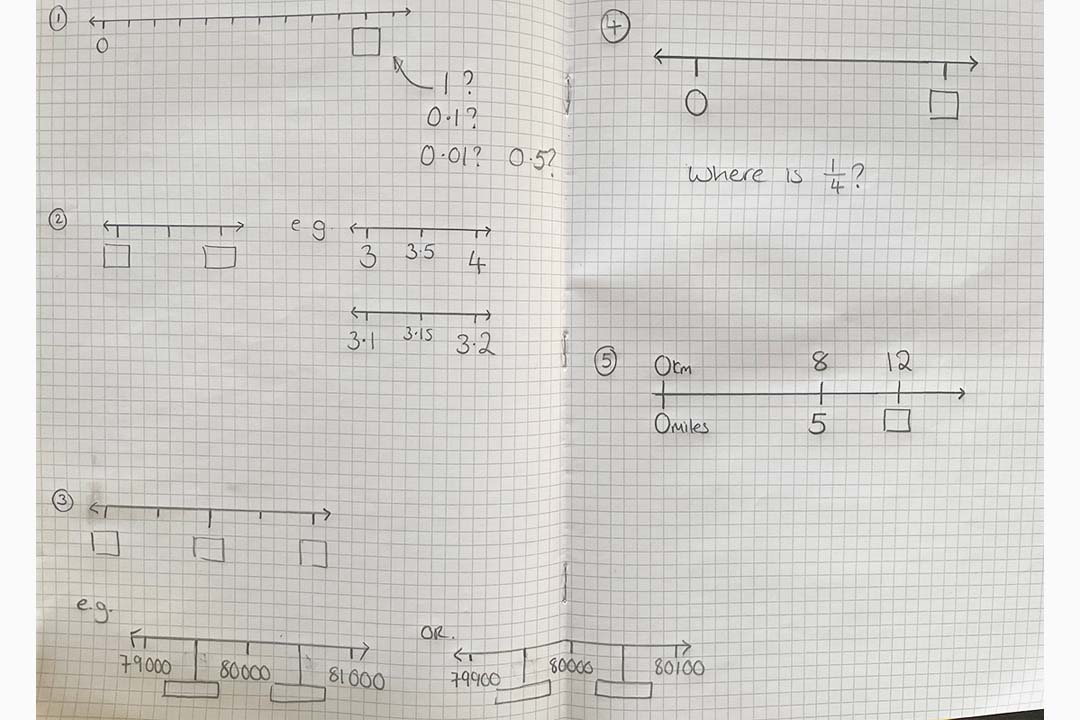 ①
0
1?
0.1?
0.01? 0.5?
② e g.
3 3.5 4
3.1 3.15 3.2
③
e.g.
79000 80000 81000
OR.
79900 80000 80100
④
0
Where is 1/4?
⑤ 0km 8 12
0miles 5